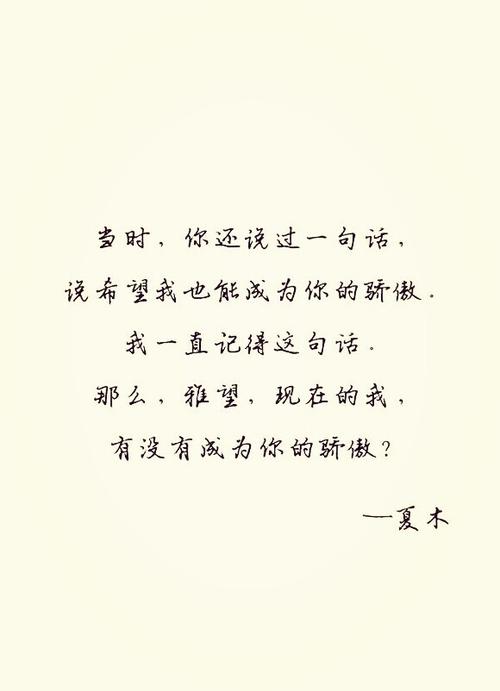 当时，你还说过一句话，
说希望我也能成为你的骄傲．
我一直记得这句话．
那么，雅望，现在的我，
有没有成为你的骄傲？
—夏木